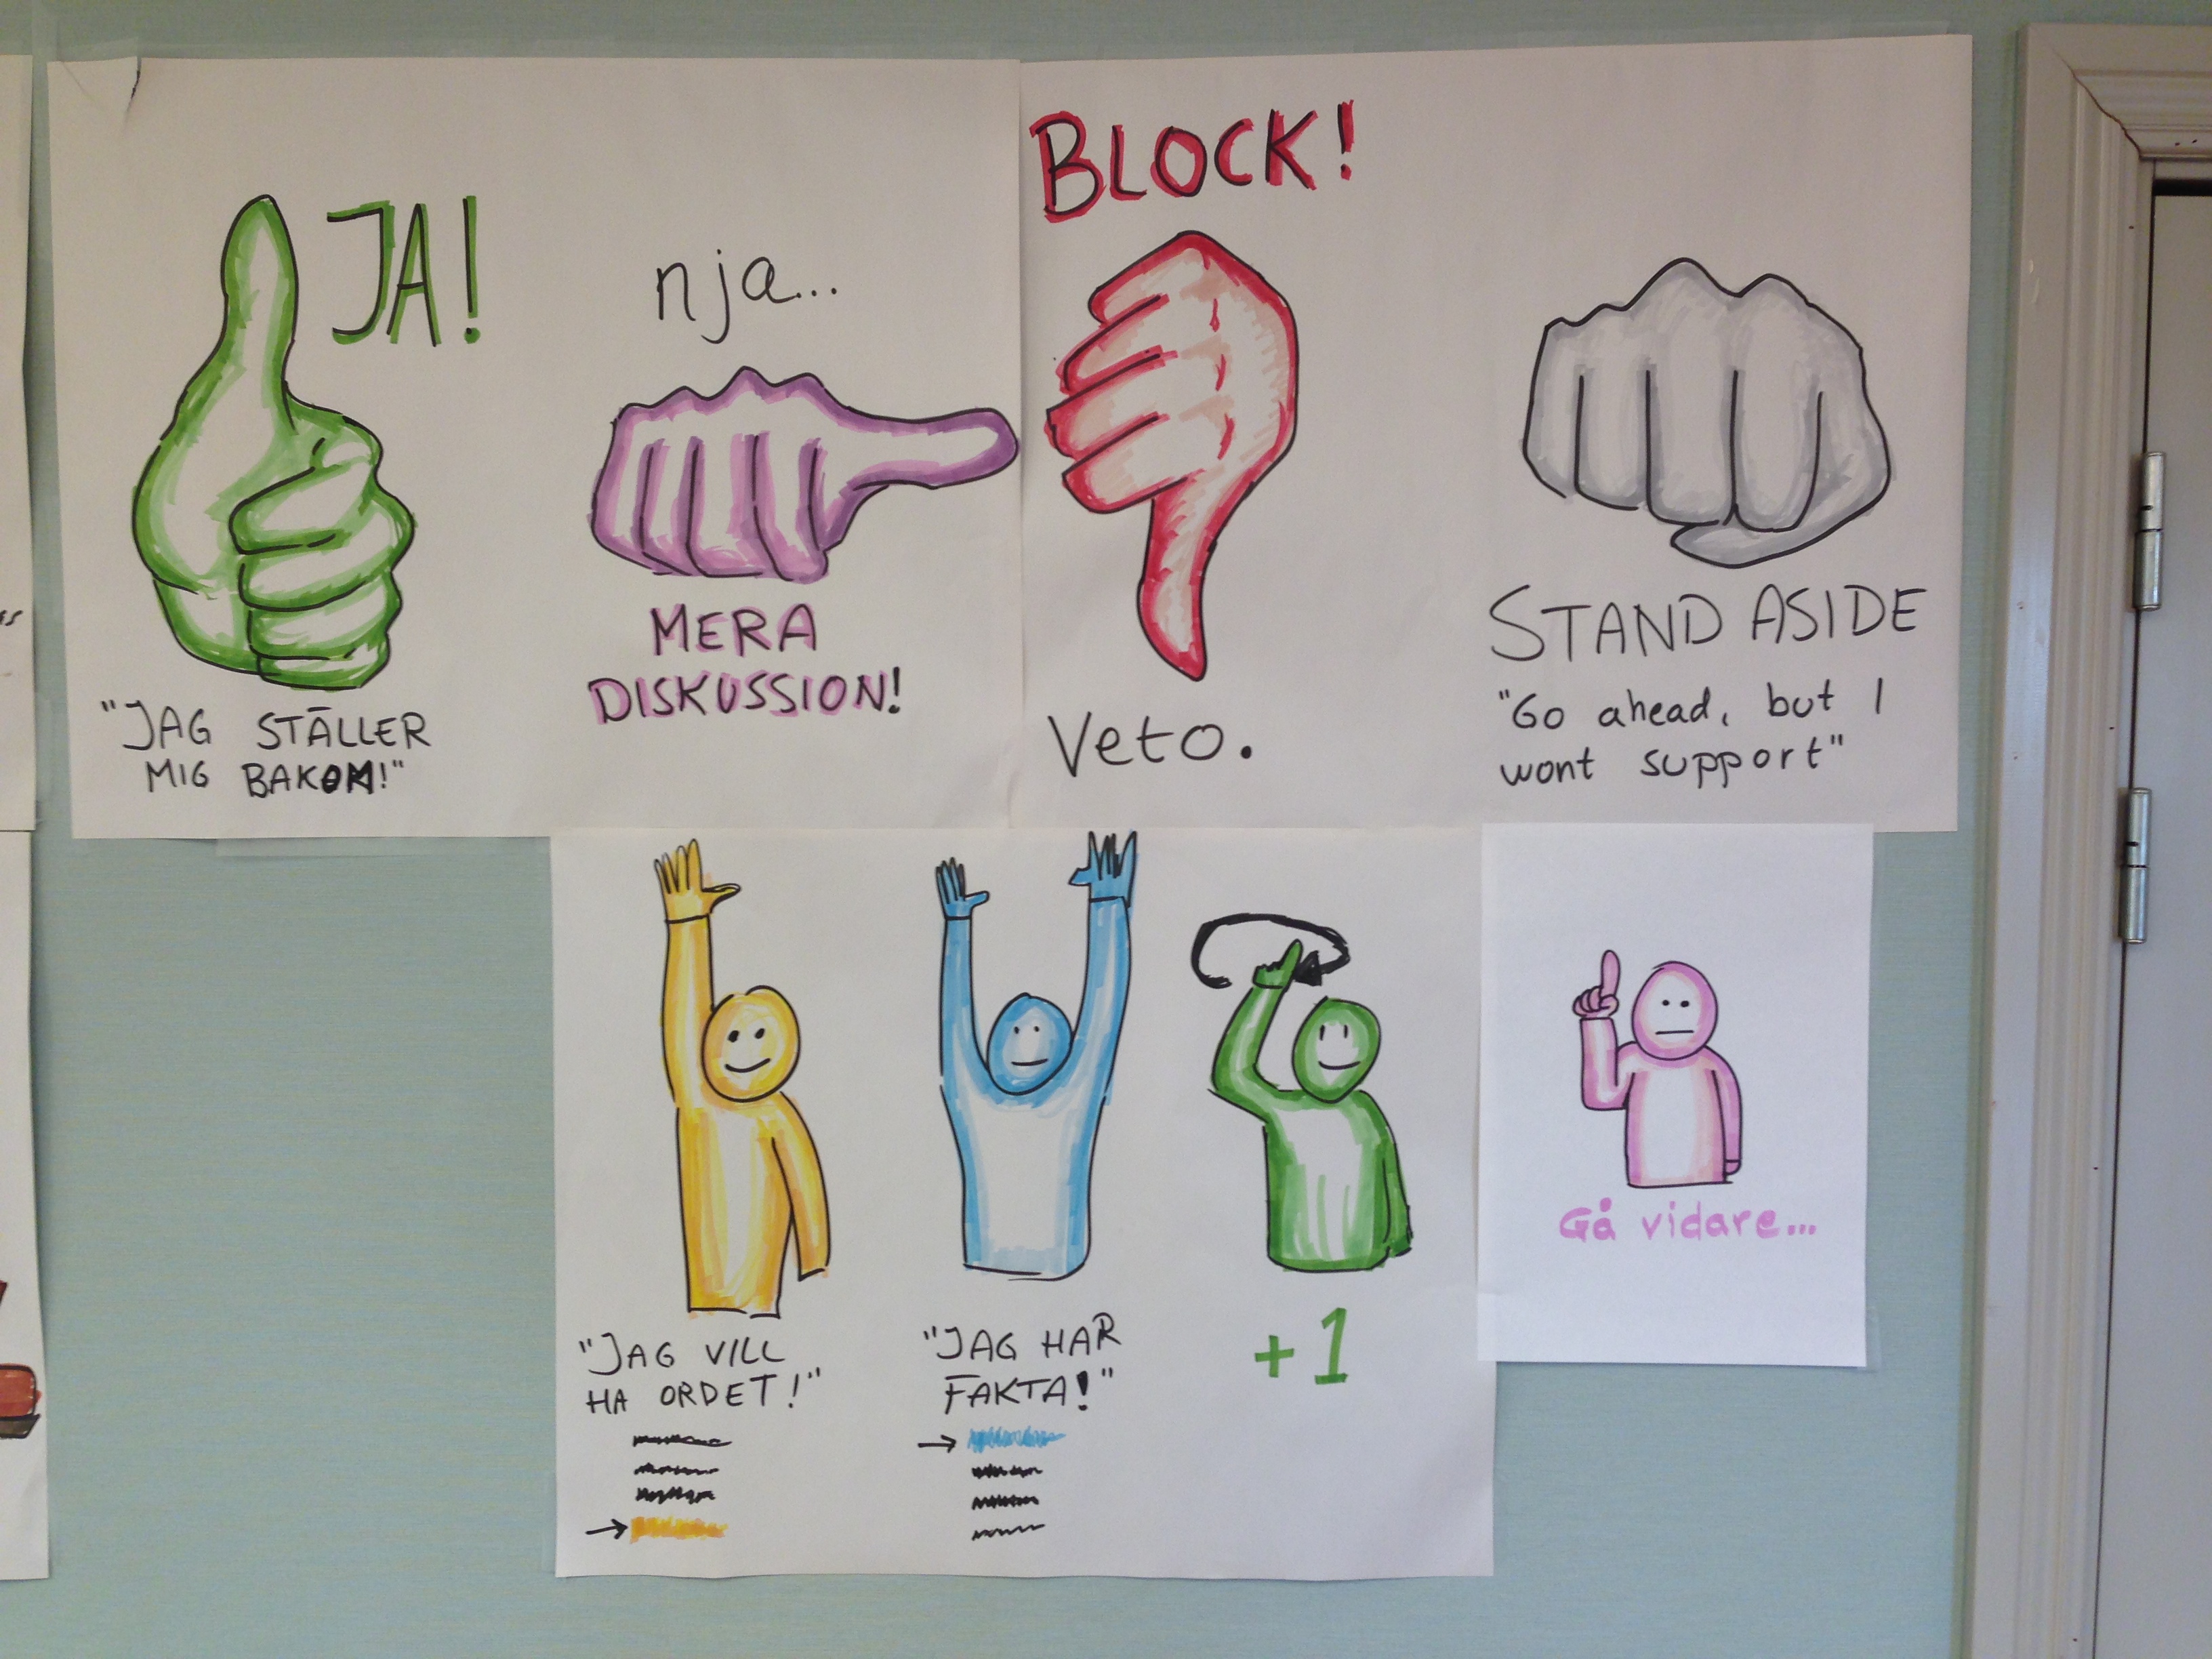 JA!
"JAG STÄLLER
MIG BAKOM!"
nja...
MERA
DISKUSSION!
BLOCK!
Veto.
STAND ASIDE
"Go ahead, but I
wont support"
"JAG VILL
HA ORDET!"
"JAG HAR
FAKTA!"
+1
Gå vidare...